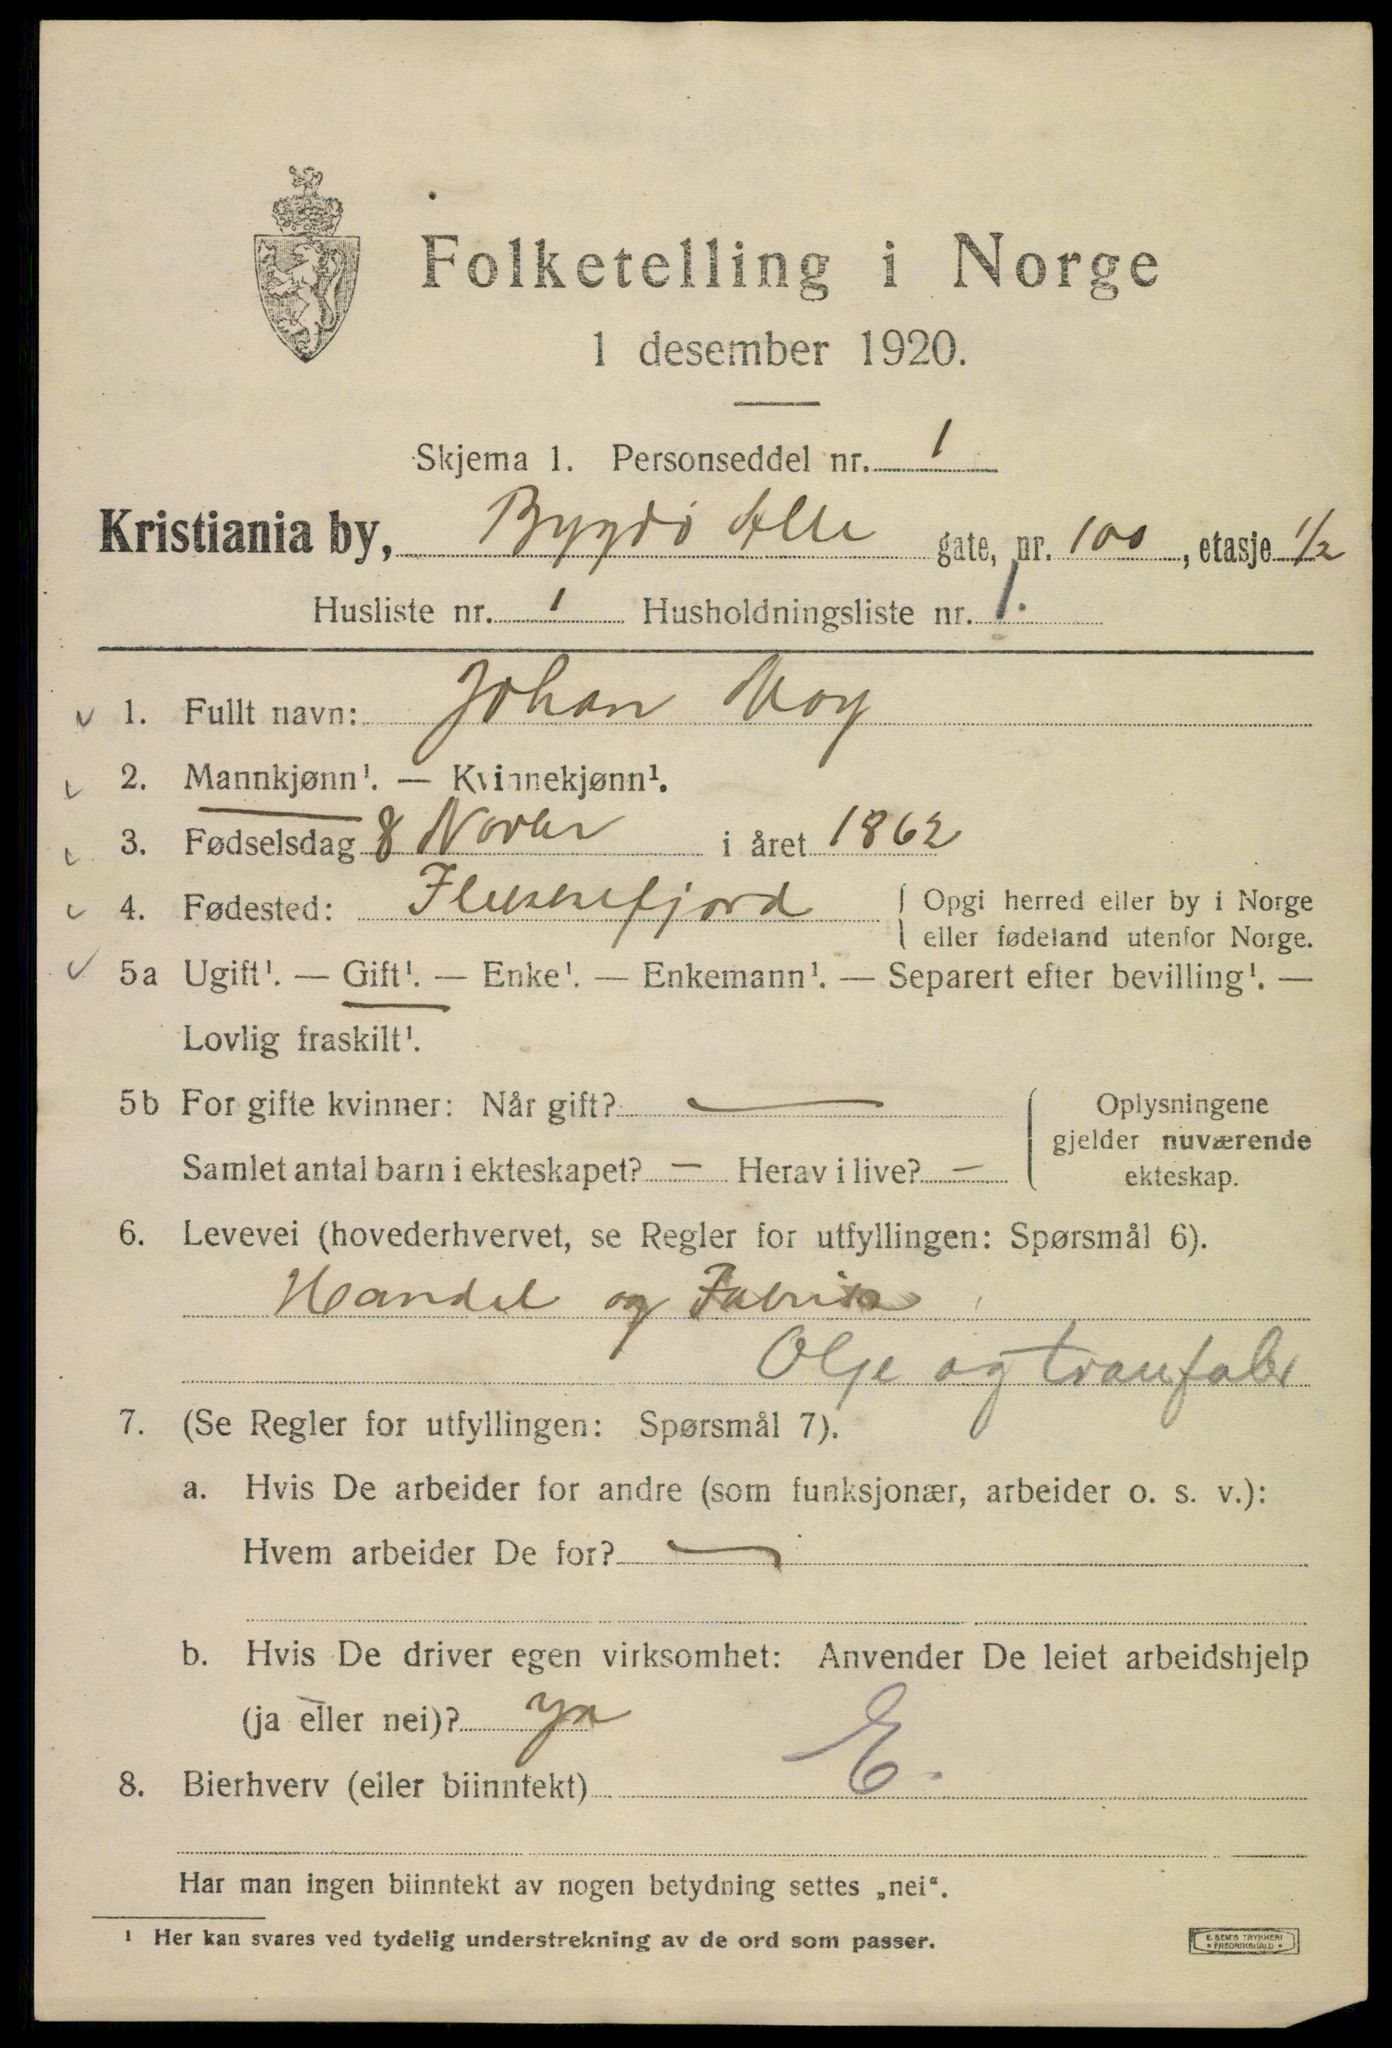 Folketelling i Norge
1 desember 1920.
Skjema 1. Personseddel nr. 1
Kristiania by, Bygdö Alle gate, nr. 100, etasje 1/2
Husliste nr. 1 Husholdningsliste nr. 1.
1. Fullt navn: Johan Moy
2. Mannkjønn¹. — Kvinnekjønn¹.
3. Fødselsdag 8 Novbr i året 1862
4. Fødested: Flekkefjord { Opgi herred eller by i Norge
eller fødeland utenfor Norge.
5a Ugift¹. — Gift¹. — Enke¹. — Enkemann¹. — Separert efter bevilling¹. —
Lovlig fraskilt¹.
5b For gifte kvinner: Når gift? — { Oplysningene
gjelder nuværende
Samlet antal barn i ekteskapet? — Herav i live? —
ekteskap.
6. Levevei (hovederhvervet, se Regler for utfyllingen: Spørsmål 6).
Handel og Fabrik
Olje og tranfabr
7. (Se Regler for utfyllingen: Spørsmål 7).
a. Hvis De arbeider for andre (som funksjonær, arbeider o. s. v.):
Hvem arbeider De for? —
b. Hvis De driver egen virksomhet: Anvender De leiet arbeidshjelp
(ja eller nei)? Ja
E.
8. Bierhverv (eller biinntekt)
Har man ingen biinntekt av nogen betydning settes „nei“.
¹ Her kan svares ved tydelig understrekning av de ord som passer.
E. SEM'S TRYKKERI
• FREDRIKSHALD •